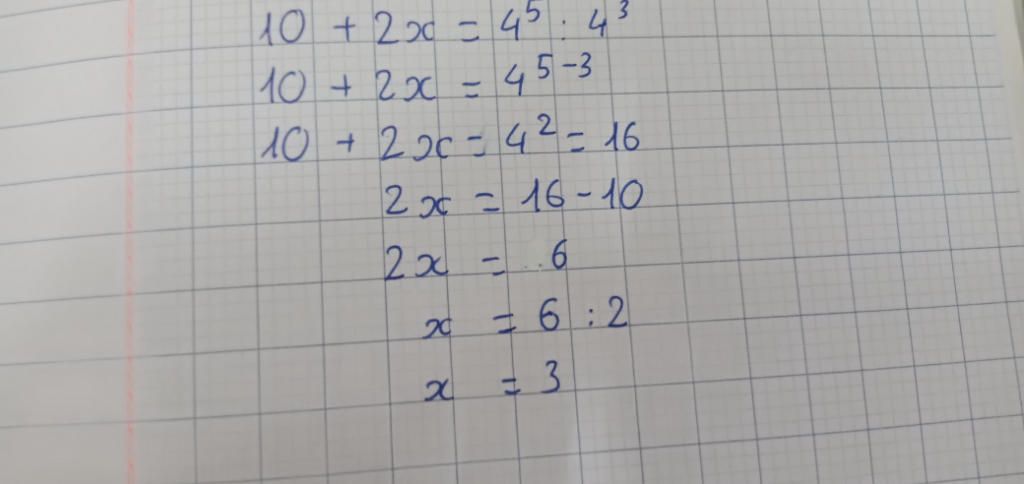 10 + 2x = 4⁵ : 4³
10 + 2x = 4⁵⁻³
10 + 2x = 4² = 16
2x = 16 - 10
2x = 6
x = 6 : 2
x = 3